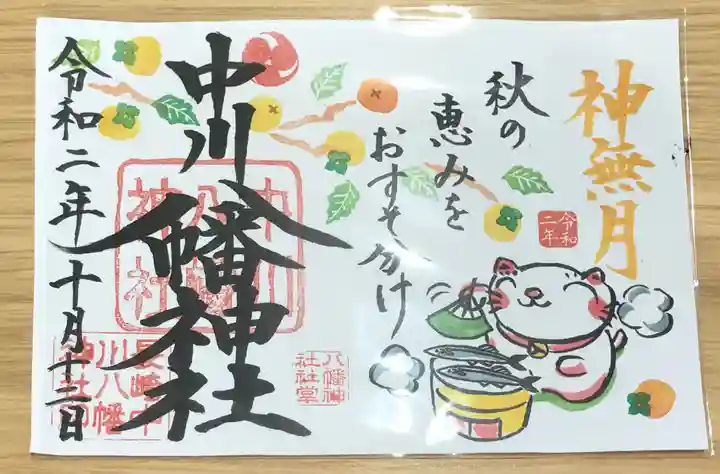 神無月
秋の
恵みを
おすそ分け
令和
二年
中川八幡神社
中川
八幡
神社
八幡神
社社堂
令和二年十月十二日
長崎中
川八幡
神社印